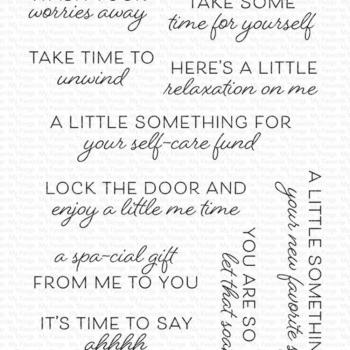 worries away
TAKE SOME
time for yourself
TAKE TIME TO
unwind
HERE'S A LITTLE
relaxation on me
A LITTLE SOMETHING FOR
your self-care fund
LOCK THE DOOR AND
enjoy a little me time
a spa-cial gift
FROM ME TO YOU
IT'S TIME TO SAY
ahhhh
YOU ARE SO
let that soa
A LITTLE SOMETHIN
your new favorite s